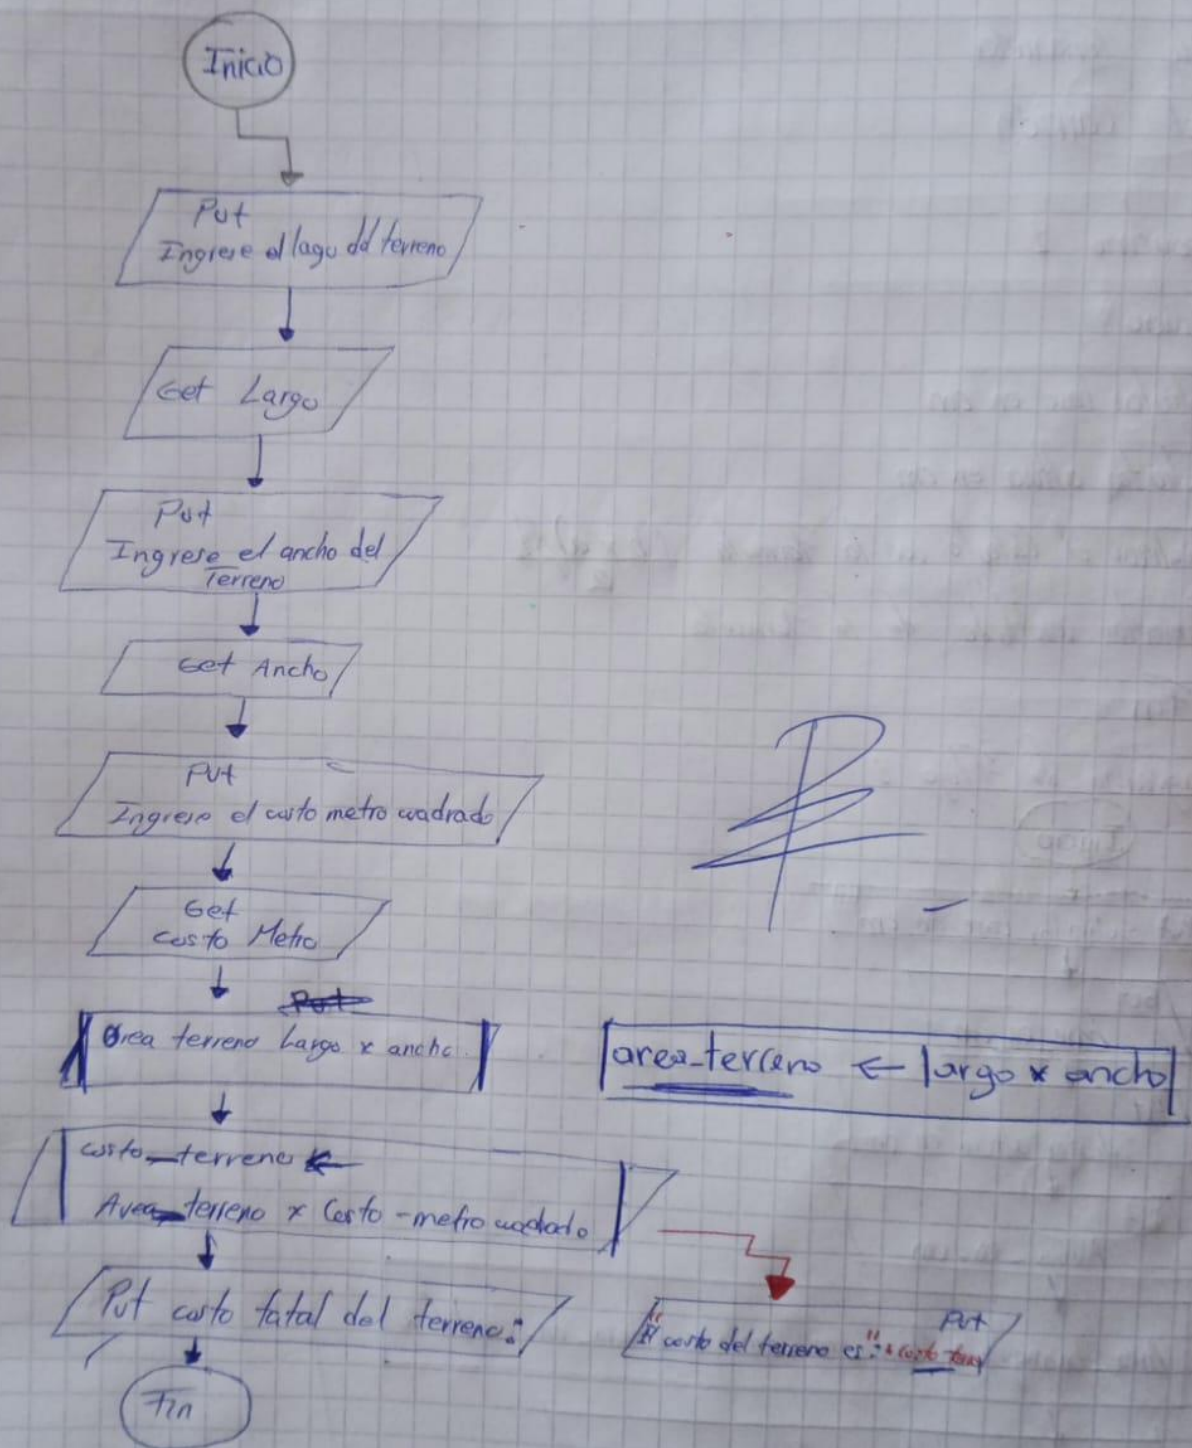 Inicio
Put
Ingrese el lago del terreno
Get Largo
Put
Ingrese el ancho del
Terreno
Get Ancho
Put
Ingrese el costo metro cuadrado
Get
costo Metro
Put
Area terreno Largo x ancho
area_terreno ← largo x ancho
costo_terreno ←
Area_terreno x Costo-metro cuadrado
Put costo tatal del terreno:
Put
"El costo del terreno es:" + costo
Fin